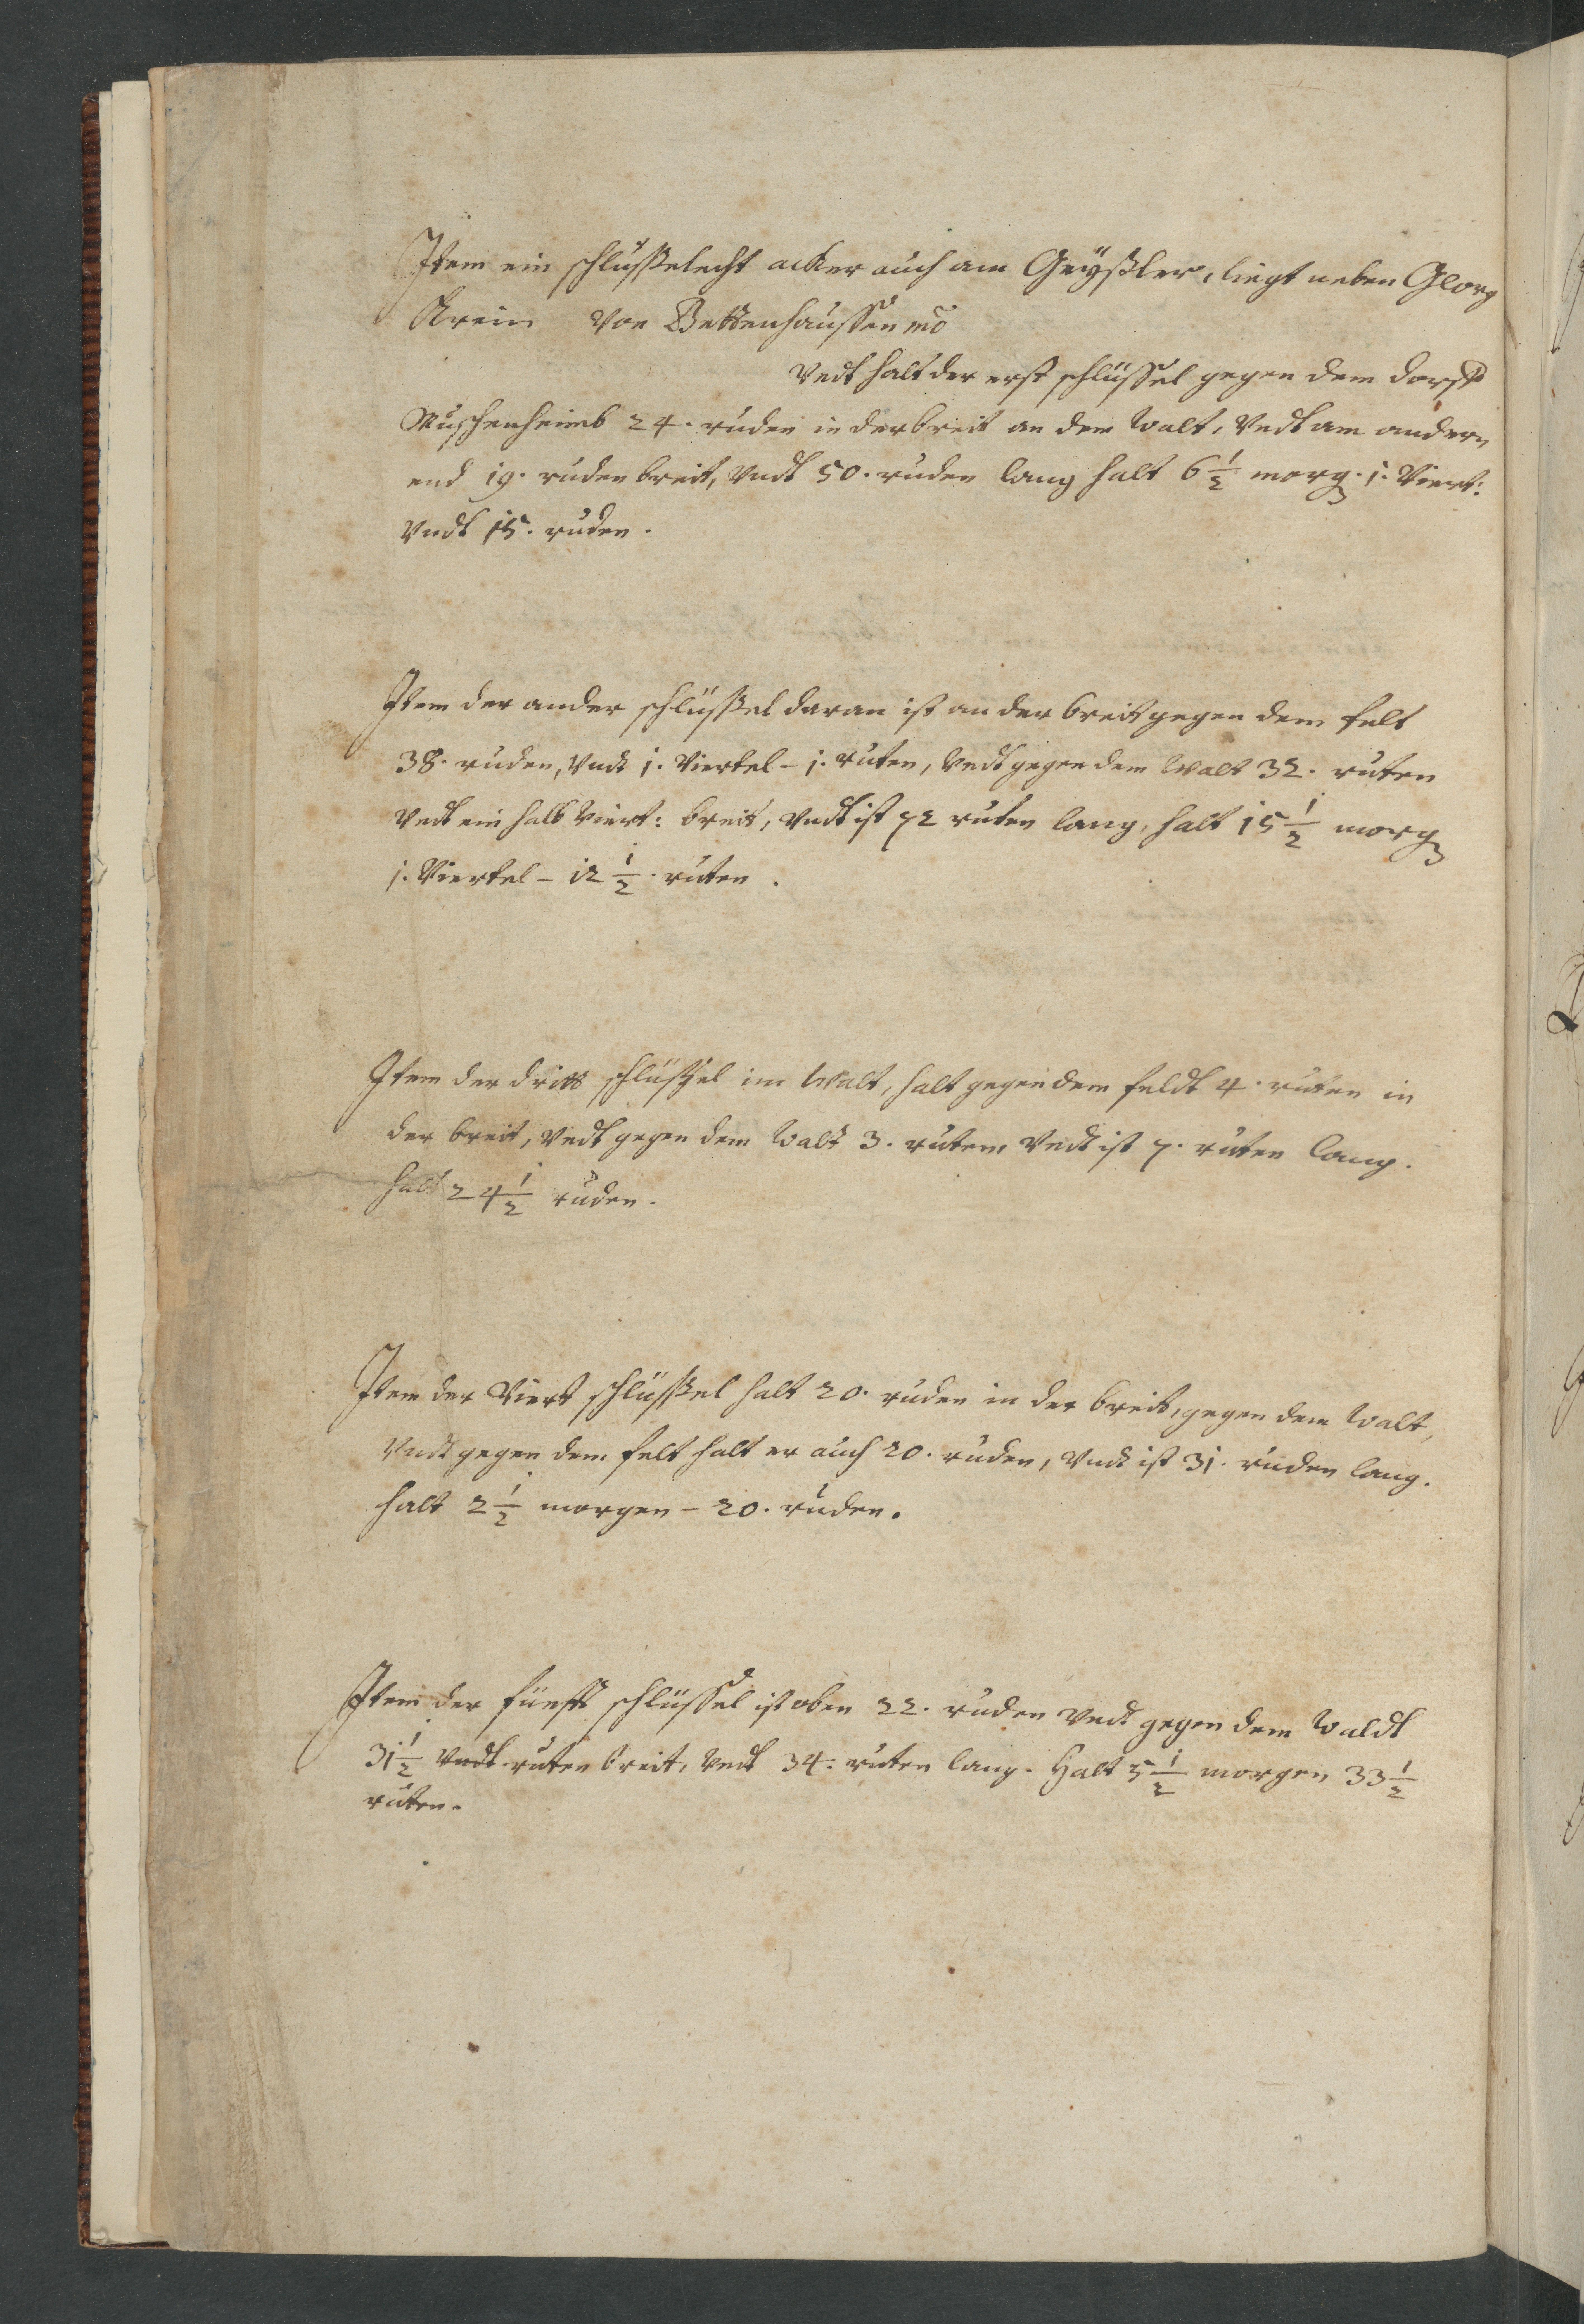 Item ein schlüßelecht acker auch am Geyßler, liegt neben Georg
von Bettenhaußen
Vndt halt der erst schlüssel gegen dem dorff
Muschenheimb 24. ruden in der breit an dem Walt, Vndt am andern
end 19. ruden breit, Vndt 50. ruden lang halt 6 1/2 morg. j. Viert:
Vndt 15. ruden.
Item der ander schlüßel daran ist an der breit gegen dem felt
38. ruden, Vndt j. Viertel - j. ruten, Vndt gegen dem Walt 32. ruten
Vndt ein halb Viert: breit, Vndt ist 72 ruten lang, halt 15 1/2 morg
j. Viertel - 12 1/2. ruten.
Item der dritt schlüßel im Walt, halt gegen dem feldt 4. ruten in
der breit, Vndt gegen dem Walt 3. ruten Vndt ist 7. ruten lang.
halt 24 1/2 ruden.
Item der Viert schlüßel halt 20. ruden in der breit, gegen dem Walt,
Vndt gegen dem felt halt er auch 20. ruden, Vndt ist 31. ruden lang.
halt 2 1/2 morgen - 20. ruden.
Item der fünfft schlüssel ist oben 22. ruden Vndt gegen dem Waldt
31 1/2 Vndt ruten breit, Vndt 34. ruten lang. Halt 5 1/2 morgen 33 1/2
ruten.